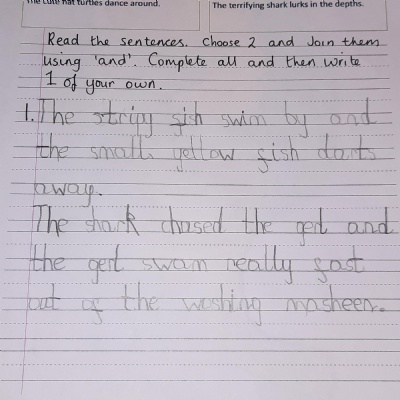 The cute hat turtles dance around.
The terrifying shark lurks in the depths.
Read the sentences. Choose 2 and Join them
using 'and'. Complete all and then write
1 of your own.
1. The stripy fish swim by and
the small yellow fish darts
away.
The shark chased the gerl and
the gerl swam really fast
out of the woshing masheen.